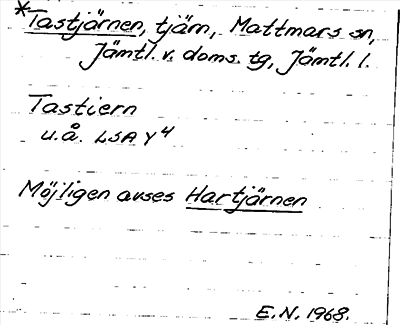 *Tastjärnen, tjärn, Mattmars sn,
Jämtl. v. doms. tg, Jämtl. l.
Tastiern
u.å. LSA Y4
Möjligen avses Hartjärnen
E.N. 1968.